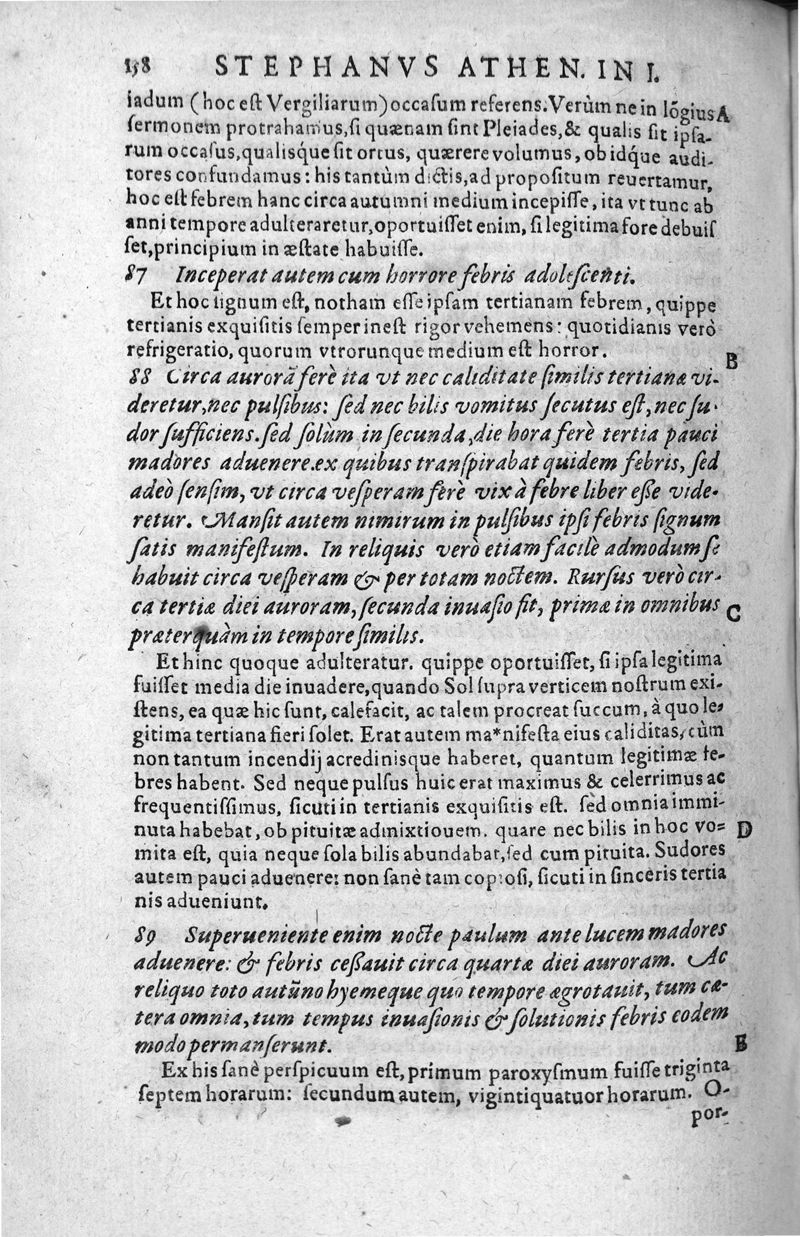 158 STEPHANVS ATHEN. IN I.
iadum (hoc eſt Vergiliarum) occaſum referens. Verùm ne in lõgius A
ſermonem protrahamus, ſi quænam ſint Pleiades, & qualis ſit ipſa-
rum occaſus, qualisq́ue ſit ortus, quærere volumus, ob idq́ue audi-
tores confundamus: his tantùm dictis, ad propoſitum reuertamur,
hoc eſt febrem hanc circa autumni medium incepiſſe, ita vt tunc ab
anni tempore adulteraretur, oportuiſſet enim, ſi legitima fore debuiſ
ſet, principium in æſtate habuiſſe.
87 Inceperat autem cum horrore febris adoleſcenti.
Et hoc ſignum eſt, notham eſſe ipſam tertianam febrem, quippe
tertianis exquiſitis ſemper ineſt rigor vehemens: quotidianis verò
refrigeratio, quorum vtrorunque medium eſt horror.
B
88 Circa aurorã ferè ita vt nec caliditate ſimilis tertianæ vi-
deretur, nec pulſibus: ſed nec bilis vomitus ſecutus eſt, nec ſu-
dor ſufficiens. ſed ſolùm in ſecunda, die hora ferè tertia pauci
madores aduenere. ex quibus tranſpirabat quidem febris, ſed
adeò ſenſim, vt circa veſperam ferè vix à febre liber eſſe vide-
retur. Manſit autem nimirum in pulſibus ipſi febris ſignum
ſatis manifeſtum. In reliquis verò etiam facilè admodum ſe
habuit circa veſperam & per totam noctem. Rurſus verò cir-
ca tertiæ diei auroram, ſecunda inuaſio fit, primæ in omnibus C
præterquàm in tempore ſimilis.
Et hinc quoque adulteratur. quippe oportuiſſet, ſi ipſa legitima
fuiſſet media die inuadere, quando Sol ſupra verticem noſtrum exi-
ſtens, ea quæ hic ſunt, calefacit, ac talem procreat ſuccum, à quo le-
gitima tertiana fieri ſolet. Erat autem ma*nifeſta eius caliditas, cùm
non tantum incendij acredinisque haberet, quantum legitimæ fe-
bres habent. Sed neque pulſus huic erat maximus & celerrimus ac
frequentiſſimus, ſicuti in tertianis exquiſitis eſt. ſed omnia immi-
nuta habebat, ob pituitæ admixtiouem. quare nec bilis in hoc vo= D
mita eſt, quia neque ſola bilis abundabat, ſed cum pituita. Sudores
autem pauci aduenere: non ſanè tam copioſi, ſicuti in ſinceris tertia
nis adueniunt.
89 Superueniente enim nocte paulum ante lucem madores
aduenere: & febris ceſſauit circa quartæ diei auroram. Ac
reliquo toto autũno hyemeque quo tempore ægrotauit, tum cæ-
tera omnia, tum tempus inuaſionis & ſolutionis febris eodem
modo permanſerunt. E
Ex his ſanè perſpicuum eſt, primum paroxyſmum fuiſſe triginta
ſeptem horarum: ſecundum autem, vigintiquatuor horarum. O-
por-